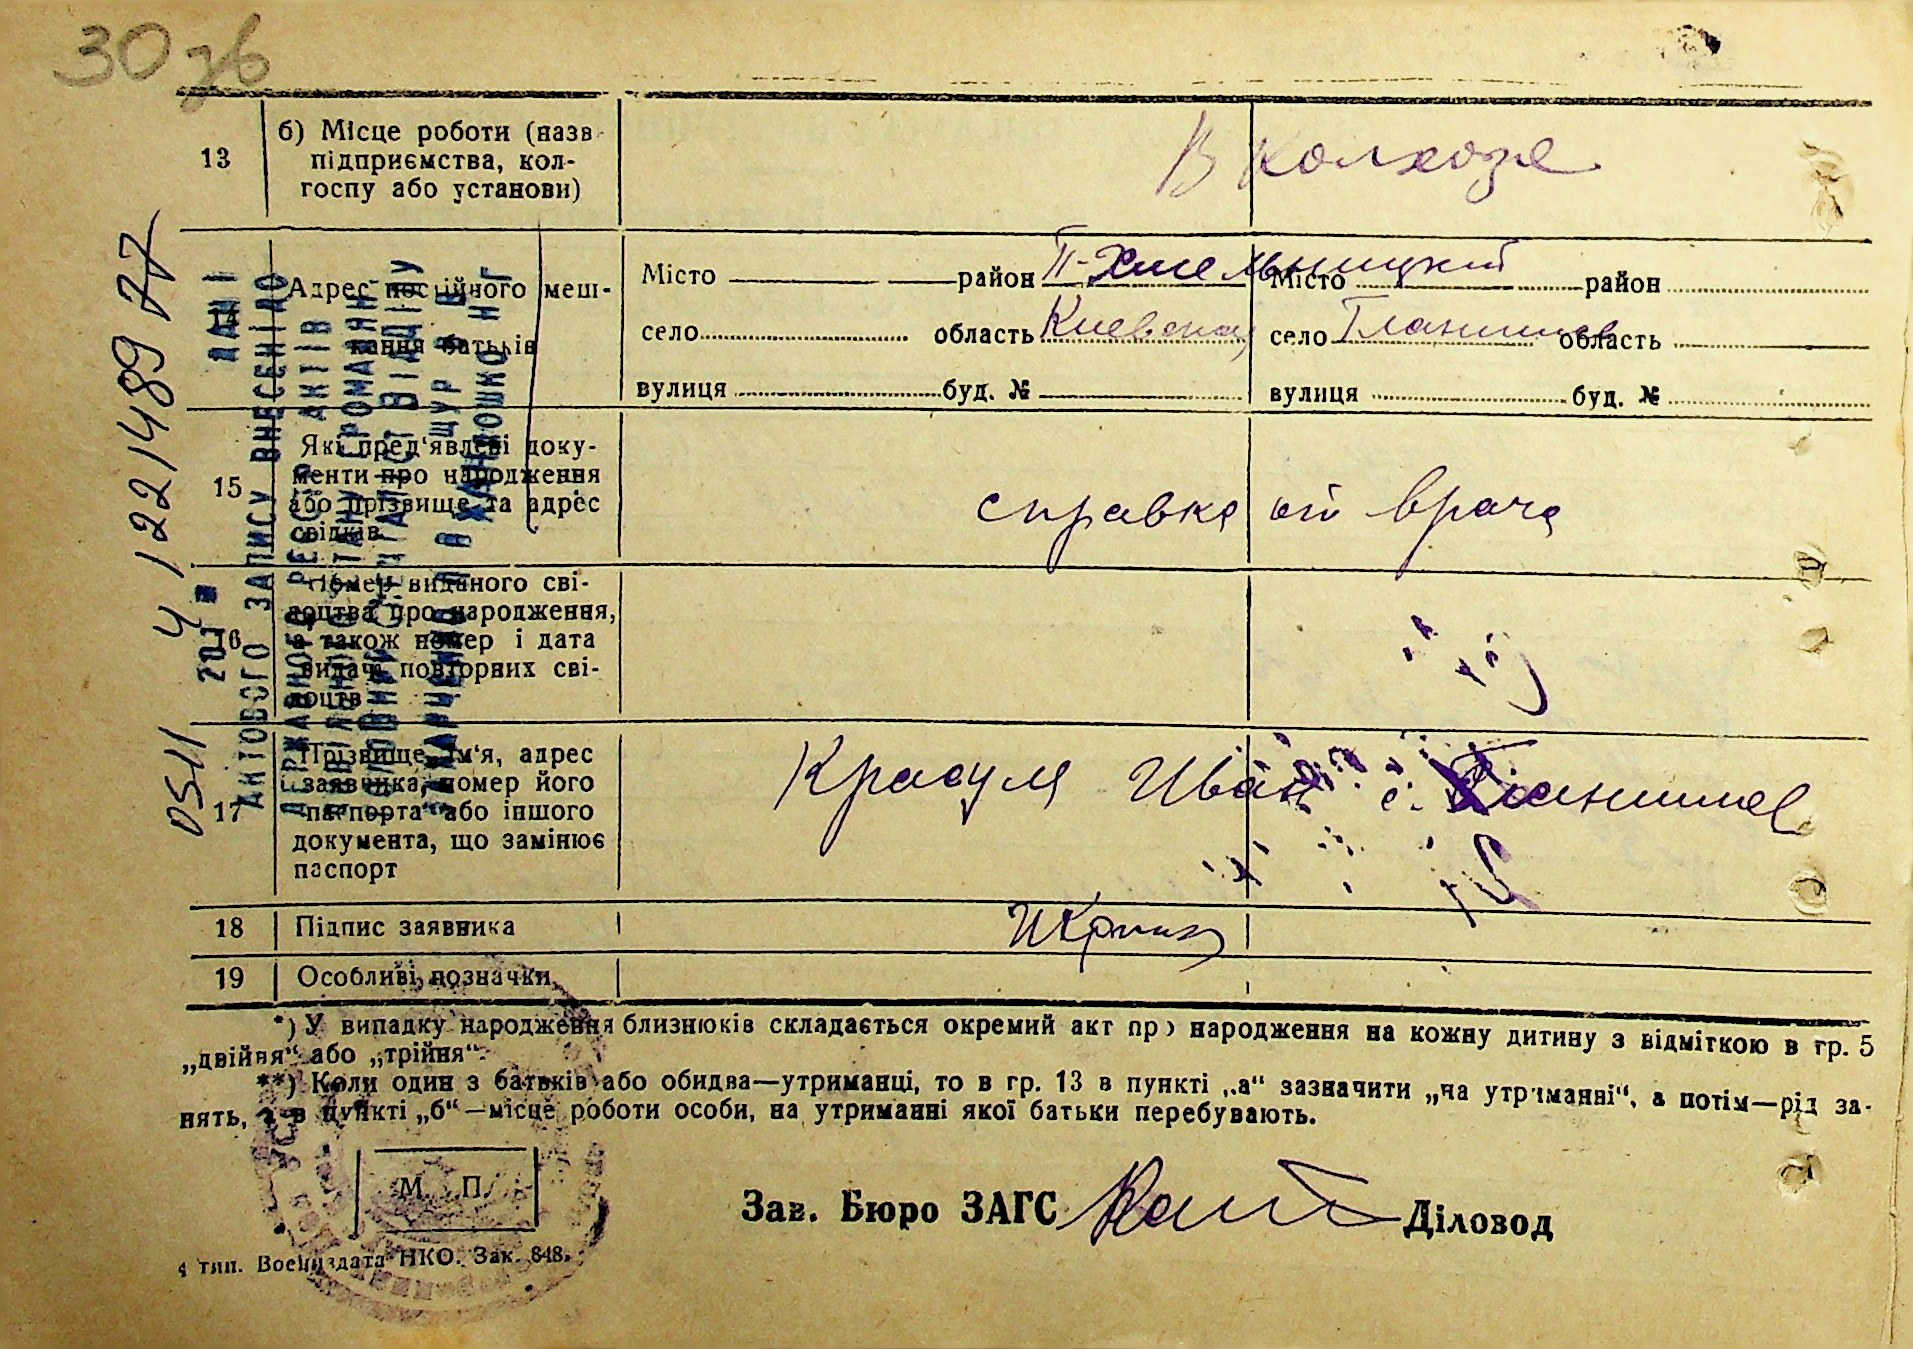 30 зв
13
б) Місце роботи (назв
підприємства, кол-
госпу або установи)
В колхозе
14
Адрес постійного меш-
кання батьків
Місто район П-Хмельницкий
село область Киевская
вулиця буд. №
Місто район
село Гланишев область
вулиця буд. №
15
Які пред'явлені доку-
менти про народження
або прізвище та адрес
свідків
справка от врача
16
Номер виданого сві-
доцтва про народження,
а також номер і дата
видачі повторних сві-
доцтв
17
Прізвище, ім'я, адрес
заявника, номер його
паспорта або іншого
документа, що замінює
паспорт
Красуля Иван с. Гланишев
18 Підпис заявника
19 Особливі позначки
*) У випадку народження близнюків складається окремий акт про народження на кожну дитину з відміткою в гр. 5
„двійня“ або „трійня“.
**) Коли один з батьків або обидва—утриманці, то в гр. 13 в пункті „а“ зазначити „на утриманні“, а потім—рід за-
нять, а в пункті „б“—місце роботи особи, на утриманні якої батьки перебувають.
М. П.
Зав. Бюро ЗАГС
Діловод
4 тип. Воениздата НКО. Зак. 848.
ДАНІ
АКТОВОГО ЗАПИСУ ВНЕСЕНІ ДО
ДЕРЖАВНОГО РЕЄСТР АКТІВ
ЦИВІЛЬНОГО СТАНУ ГРОМАДЯН
ГОЛОВНИЙ СПЕЦІАЛІСТ ВІДДІЛУ